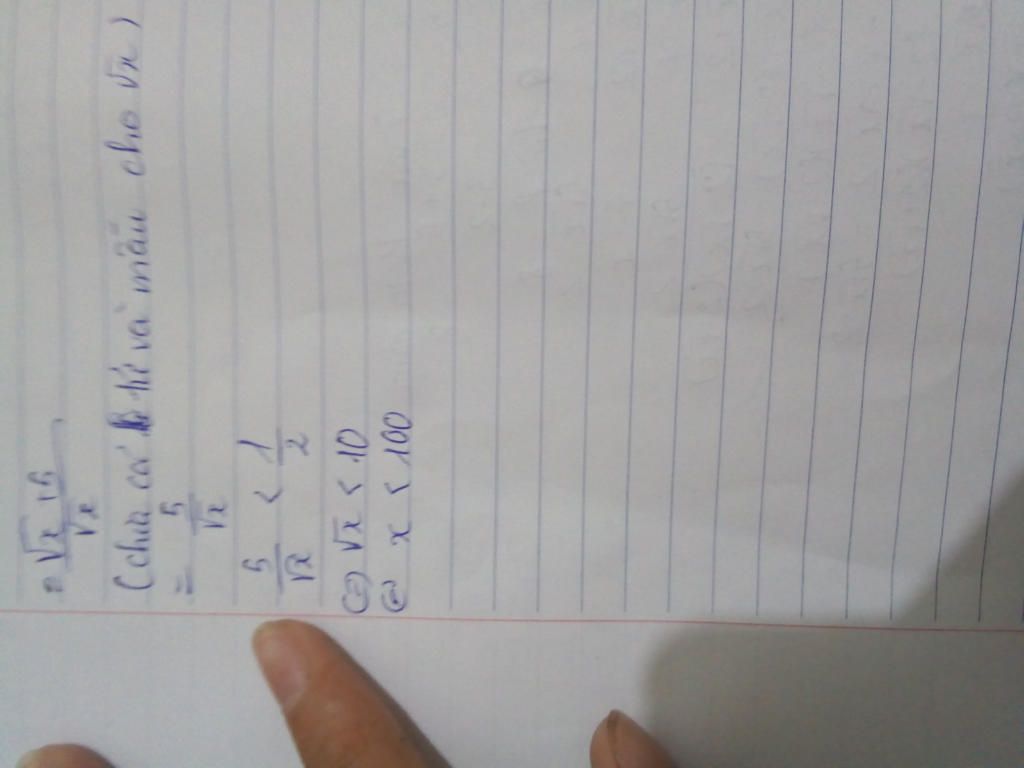 = √x + 5 / √x
(chia cả tử và mẫu cho √x)
= 5 / √x
5 / √x < 1 / 2
(=) √x < 10
(=) x < 100